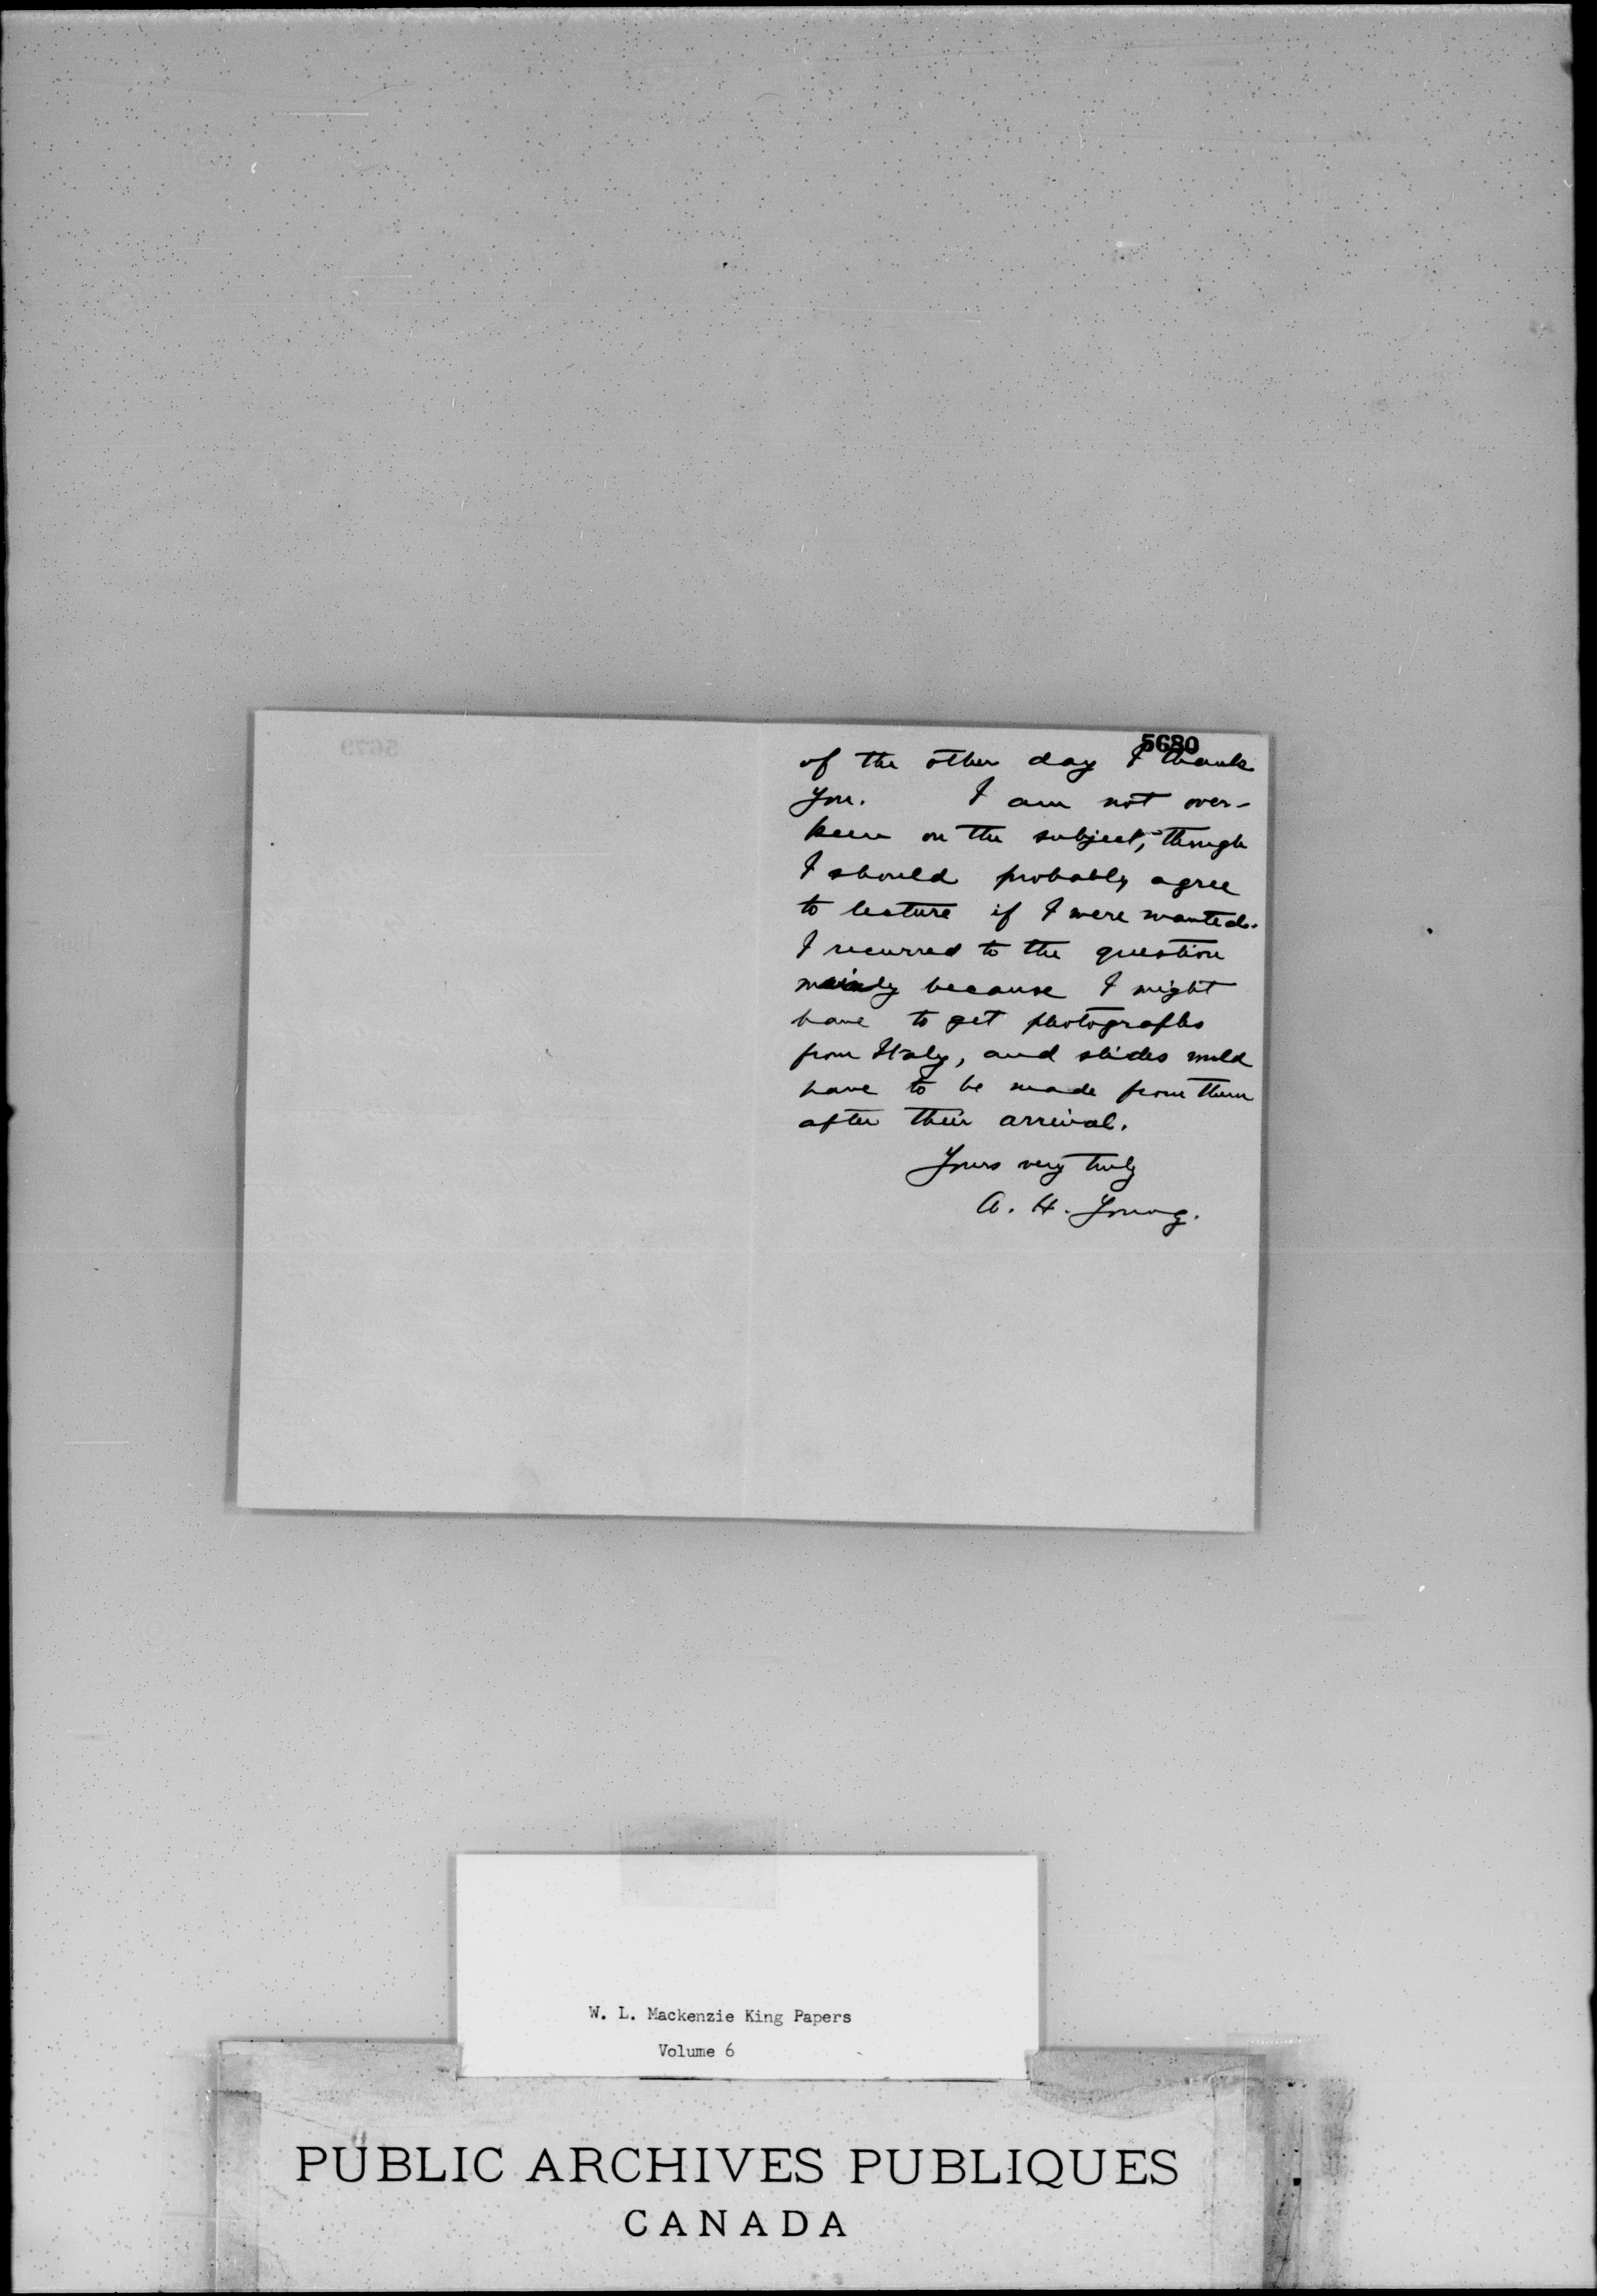 5679
5680
of the other day I thank
you. I am not over-
keen on the subject, though
I should probably agree
to lecture if I were wanted.
I recurred to the question
mainly because I might
have to get photographs
from Italy, and slides would
have to be made from them
after their arrival.
Yours very truly
A. H. Young.
W. L. Mackenzie King Papers
Volume 6
PUBLIC ARCHIVES PUBLIQUES
CANADA